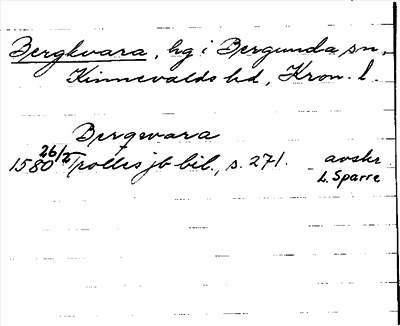 Bergkvara, hg i Bergunda sn,
Kinnevalds hd, Kron. l.
Bergqvara
1580 26/2 Trolles jb bil., s. 271. avskr
L. Sparre